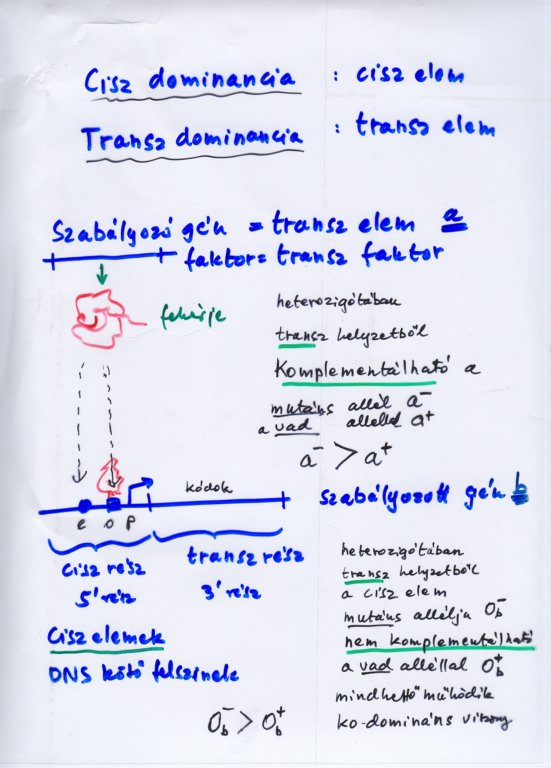 Cisz dominancia : cisz elem
Transz dominancia : transz elem
Szabályozó gén = transz elem a
faktor = transz faktor
fehérje
heterozigótában
transz helyzetből
Komplementálható a
mutáns allél a⁻
a vad alléllel a⁺
a⁻ > a⁺
kódok
szabályozott gén b
e o p
cisz rész
transz rész
5' rész
3' rész
Cisz elemek
DNS kötő felszinek
O_b⁻ > O_b⁺
heterozigótában
transz helyzetből
a cisz elem
mutáns allélja O_b⁻
nem komplementálható
a vad alléllal O_b⁺
mindkettő működik
ko-domináns viszony